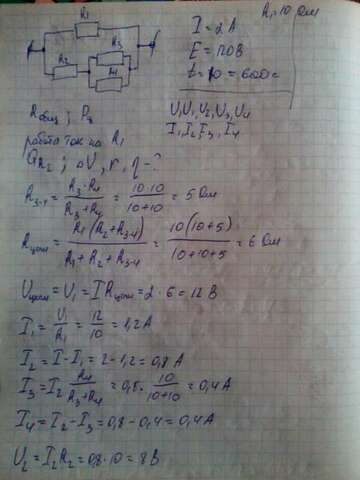 R₁ R₁=10 Ом
I = 2 А
R₃
R₂ E = 120 В
R₄ t = 10 = 600с
Rобщ ; P₂ U, U₁, U₂, U₃, U₄
I₁, I₂, I₃, I₄
работа ток на R₁
QR₂ ; ΔU, r, η - ?
R₃₋₄ = R₃·R₄ / R₃+R₄ = 10·10 / 10+10 = 5 Ом
Rцепи = R₁(R₂+R₃₋₄) / R₁+R₂+R₃₋₄ = 10(10+5) / 10+10+5 = 6 Ом
Uцепи = U₁ = I Rцепи = 2 · 6 = 12 В
I₁ = U₁ / R₁ = 12 / 10 = 1,2 А
I₂ = I - I₁ = 2 - 1,2 = 0,8 А
I₃ = I₂ R₄ / R₃+R₄ = 0,8 · 10 / 10+10 = 0,4 А
I₄ = I₂ - I₃ = 0,8 - 0,4 = 0,4 А
U₂ = I₂ R₂ = 0,8 · 10 = 8 В